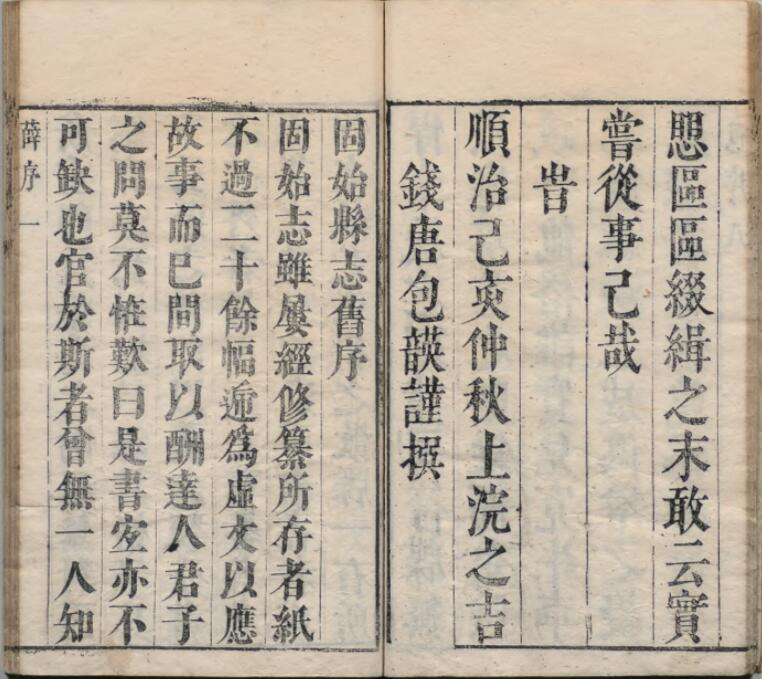 區區綴緝之末敢云實
嘗從事己哉
旹
順治己亥仲秋上浣之吉
錢唐包韺謹撰
固始縣志舊序
固始志雖屢經修纂所存者紙
不過二十餘幅逓爲虛文以應
故事而巳間取以酬達人君子
之問莫不惟歎曰是書亦不
可缺也官於斯者曾無一人知
薛序 一